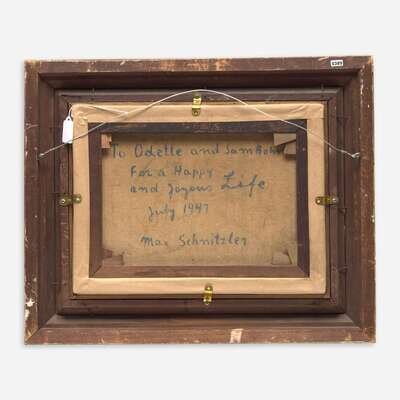 To Odette and Sam
For a Happy
and Joyous Life
July 1947
Max Schnitzler